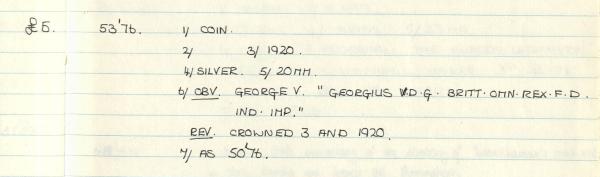 £5. 53'76. 1/ COIN.
2/ 3/ 1920.
4/ SILVER. 5/ 20MM.
6/ OBV. GEORGE V. "GEORGIUS V.D.G. BRITT.OMN.REX.F.D.
IND.IMP."
REV. CROWNED 3 AND 1920.
7/ AS 50'76.